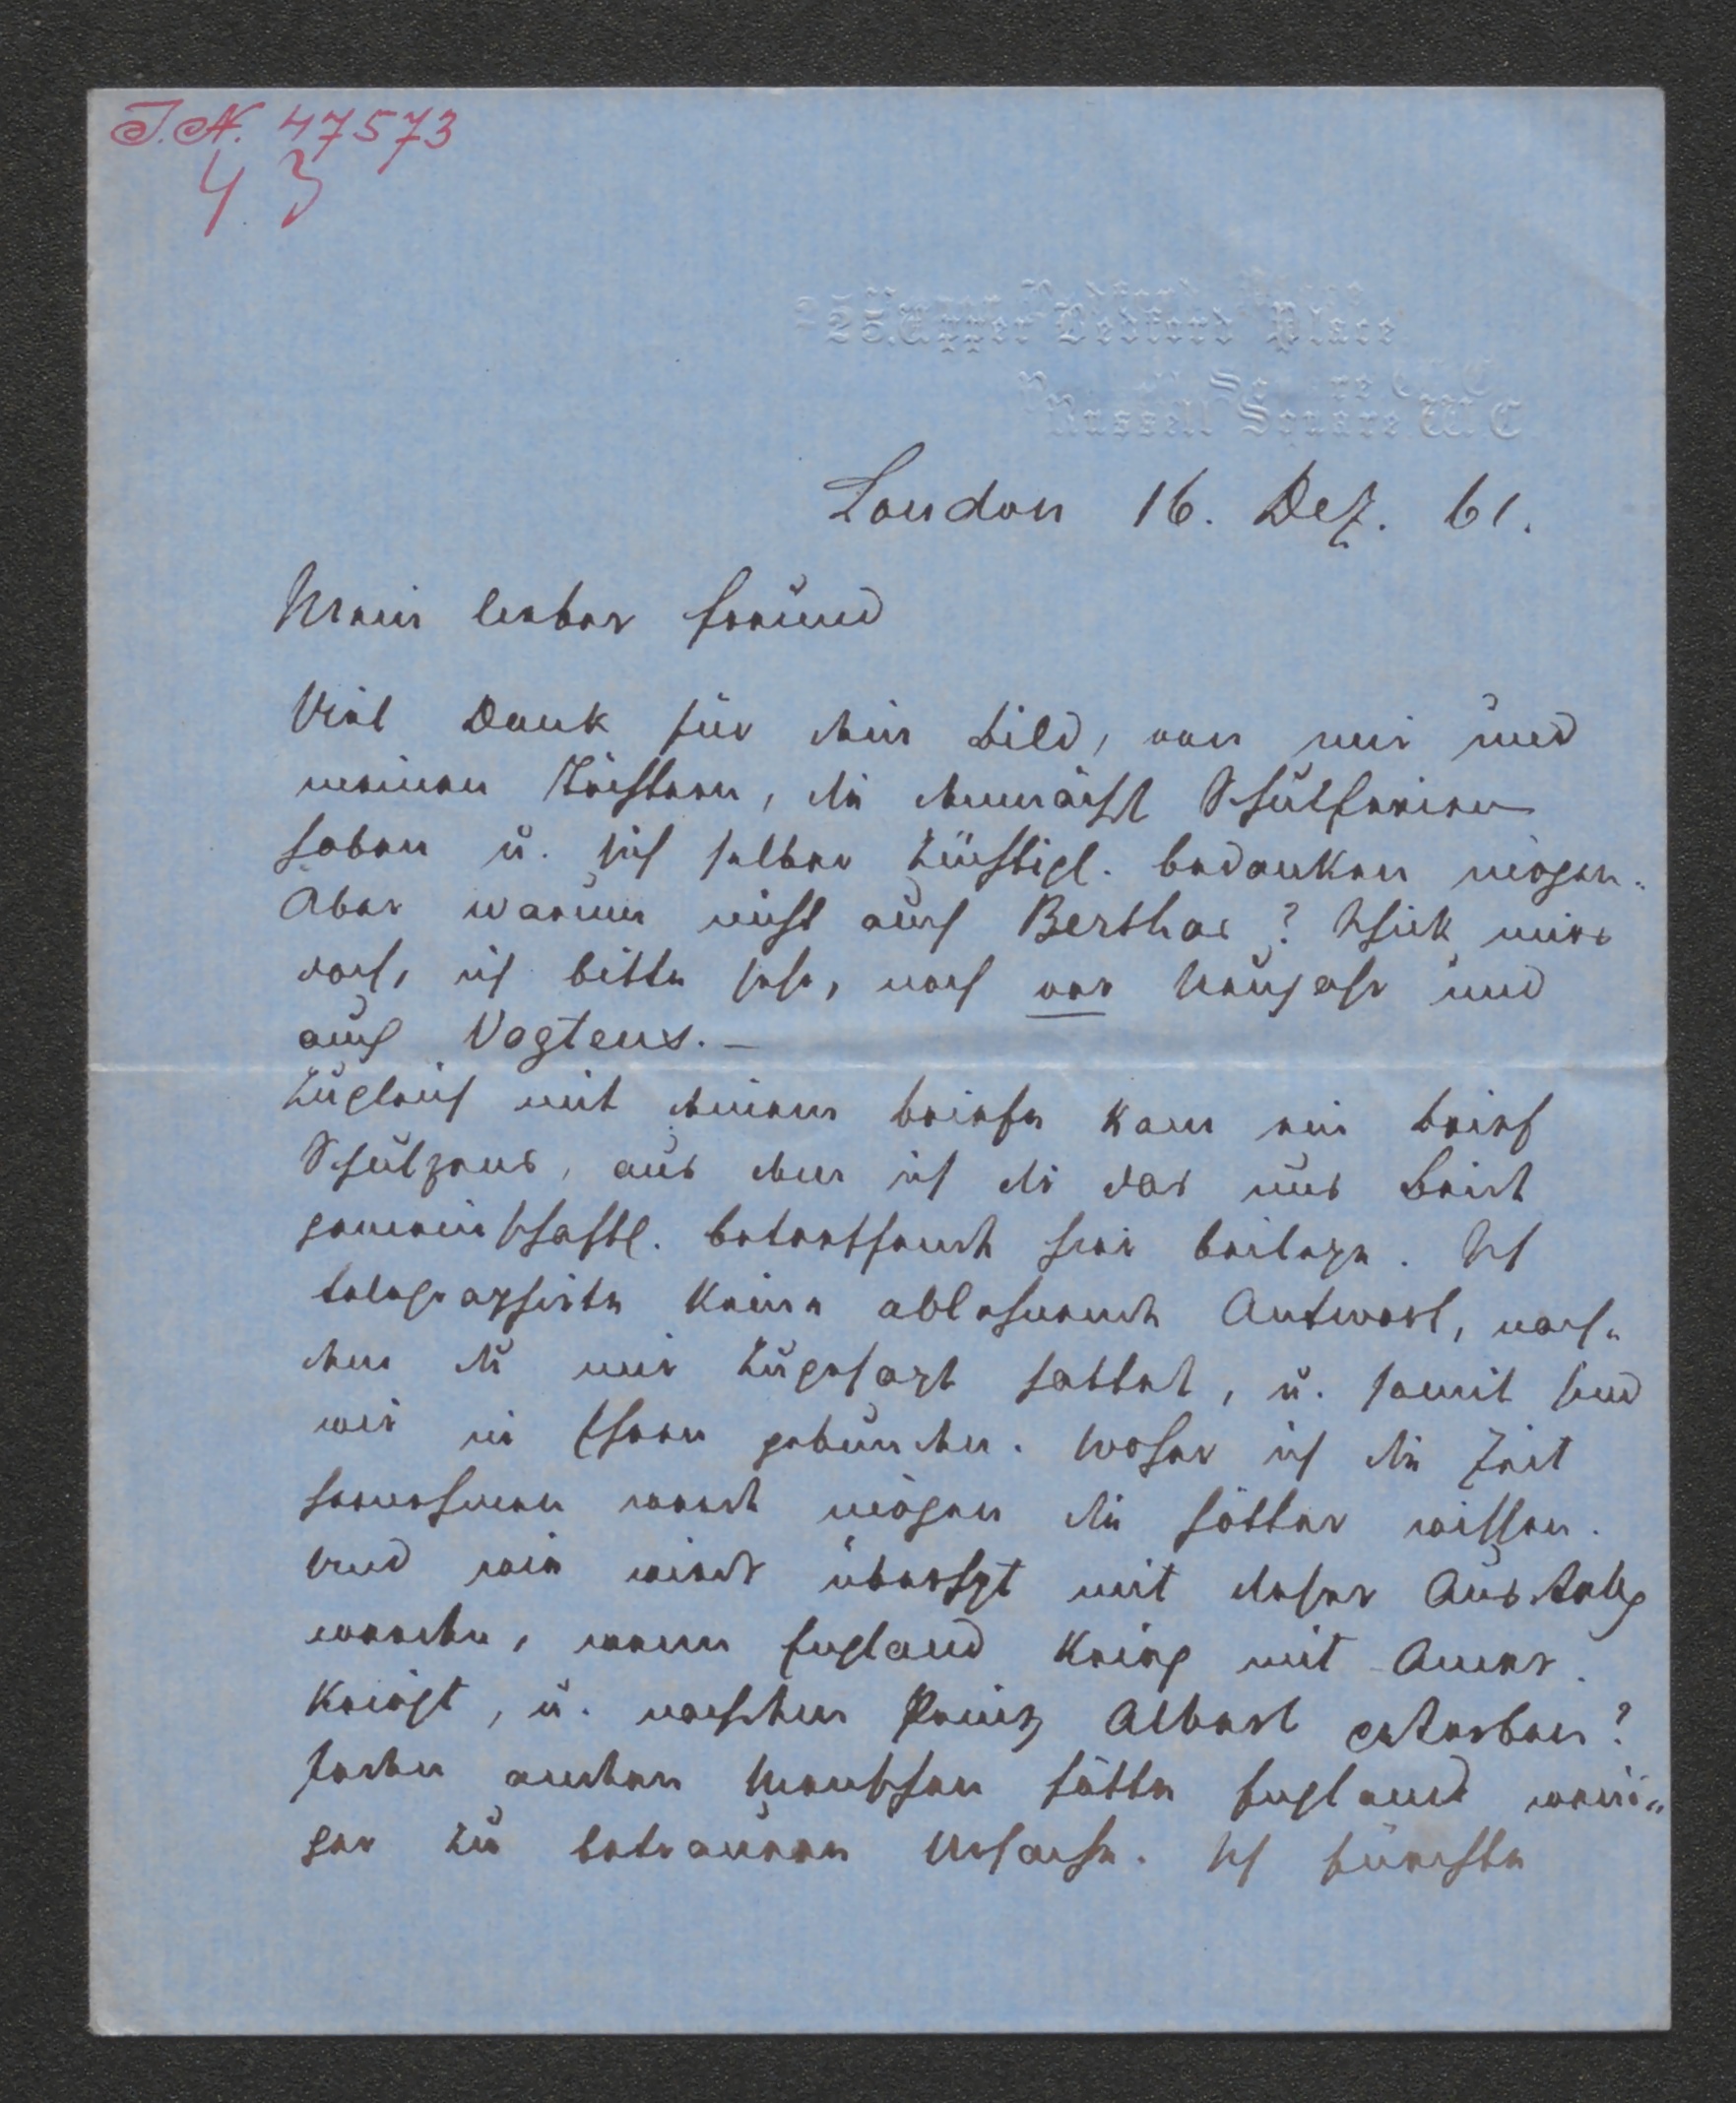 J.N. 47573
43
25. Upper Bedford Place
Russell Square W.C
London 16. Dez. 61.
Mein lieber Freund
Viel Dank für dein Bild, von mir und
meinen Töchtern, die demnächst Schulferien
haben u. sich selber züchtigl. bedanken mögen.
Aber warum nicht auch Berthas? Schick mirs
doch, ich bitte sehr, noch vor Neujahr und
auch Vogtens. –
Zugleich mit deinem Briefe kam ein Brief
Schulzens, aus dem ich dir das uns Beide
gemeinschaftl. betreffende hier beilege. Ich
telegraphirte keine ablehnende Antwort, nach-
dem du mir zugesagt hattest, u. somit sind
wir in Ehren gebunden. Woher ich die Zeit
hernehmen werde mögen die Götter wissen.
Und wie wirds überhpt mit dieser Ausstellg
werden, wenn England Krieg mit Amer.
kriegt, u. nachdem Prinz Albert gestorben?
Jeden andern Menschen hätte England weni-
ger zu betrauern Ursache. Ich fürchte